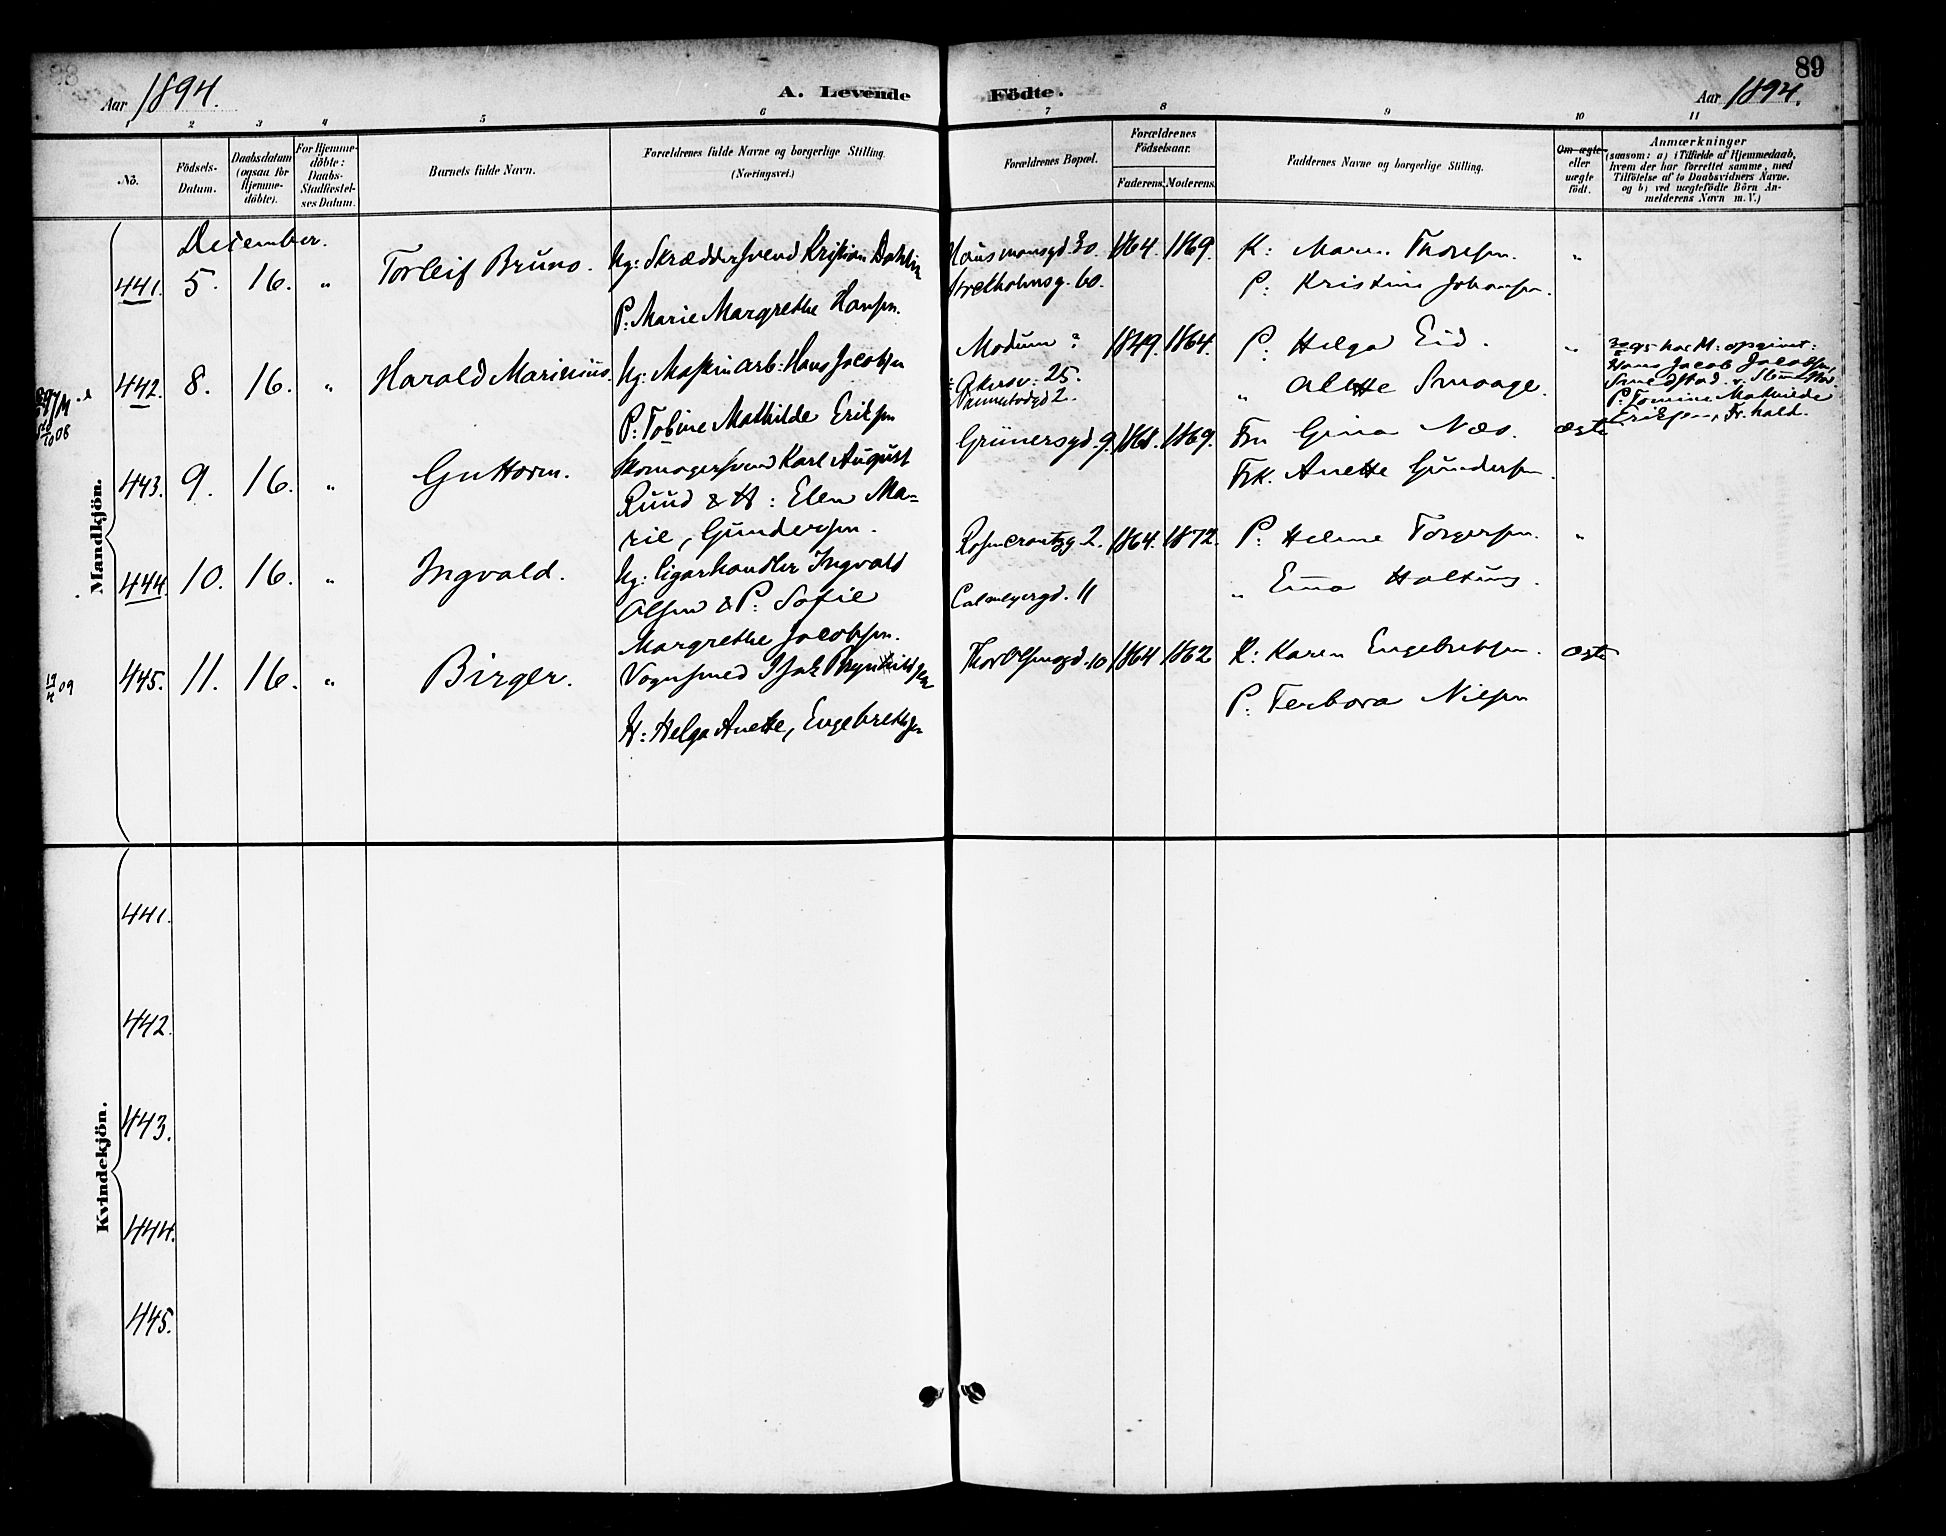 89
Aar 1894.
A. Levende
Födte.
Aar 1894.
1 2 3 4 5 6 7 8 9 10 11
No.
Födsels-
Datum.
Daabsdatum
(ogsaa for
Hjemme-
döbte).
For Hjemme-
döbte:
Daabs-
Stadfæstel-
ses Datum.
Barnets fulde Navn.
Forældrenes fulde Navne og borgerlige Stilling.
(Næringsvei.)
Forældrenes Bopæl.
Forældrenes
Födselsaar.
Faderens. Moderens.
Faddernes Navne og borgerlige Stilling.
Om ægte
eller
uægte
födt.
Anmærkninger
(saasom: a) i Tilfælde af Hjemmedaab,
hvem der har forrettet samme, med
Tilföielse af to Daabsvidners Navne.
og b) ved uægtefödte Börn An-
melderens Navn m. V.)
Mandkjön.
December.
441. 5. 16. " Torleif Bruno.
Ug: Skræddersvend Kristian Dahlin
P: Marie Margrethe Hansen.
Hausmansgd 30. 1864. 1869.
60.
K: Maren Thoresen. "
P: Kristine Johansen.
442. 8. 16. " Harald Marinius.
Ug: Maskinarb: Hans Jacobsen
P: Tobine Mathilde Eriksen
Modum ? 1849. 1864.
Akersv: 25.
P: Helga Eid. "
" Alette Smaage.
95 har M: opgivet:
Hans Jacob Jacobsen,
Smedstad
P: Tomine Mathilde
Eriksen, Fr.hald.
08
443. 9. 16. " Guttorm.
Skomagersvend Karl August
Ruud & H: Elen Ma-
rie, Gundersen.
Grünersgd. 9. 1868. 1869.
Fru Gina Næs. ægte
Frk. Anette Gundersen.
444. 10. 16. " Ingvald.
Ug: Cigarhandler Ingvald
Olsen & P: Sofie
Margrethe Jacobsen.
Rosencrantzg. 2. 1864. 1872.
Calmeyergd. 11
P: Helene Torgersen. "
" Emma
19/4 09
445. 11. 16. " Birger.
Vognsmed Isak Brynildsen
H: Helga Anette, Engebretsen
Thor Olsensgd. 10 1864 1862
K: Karen Engebretsen. ægte
P: Nilsen
Kvindekjön.
441.
442.
443.
444.
445.